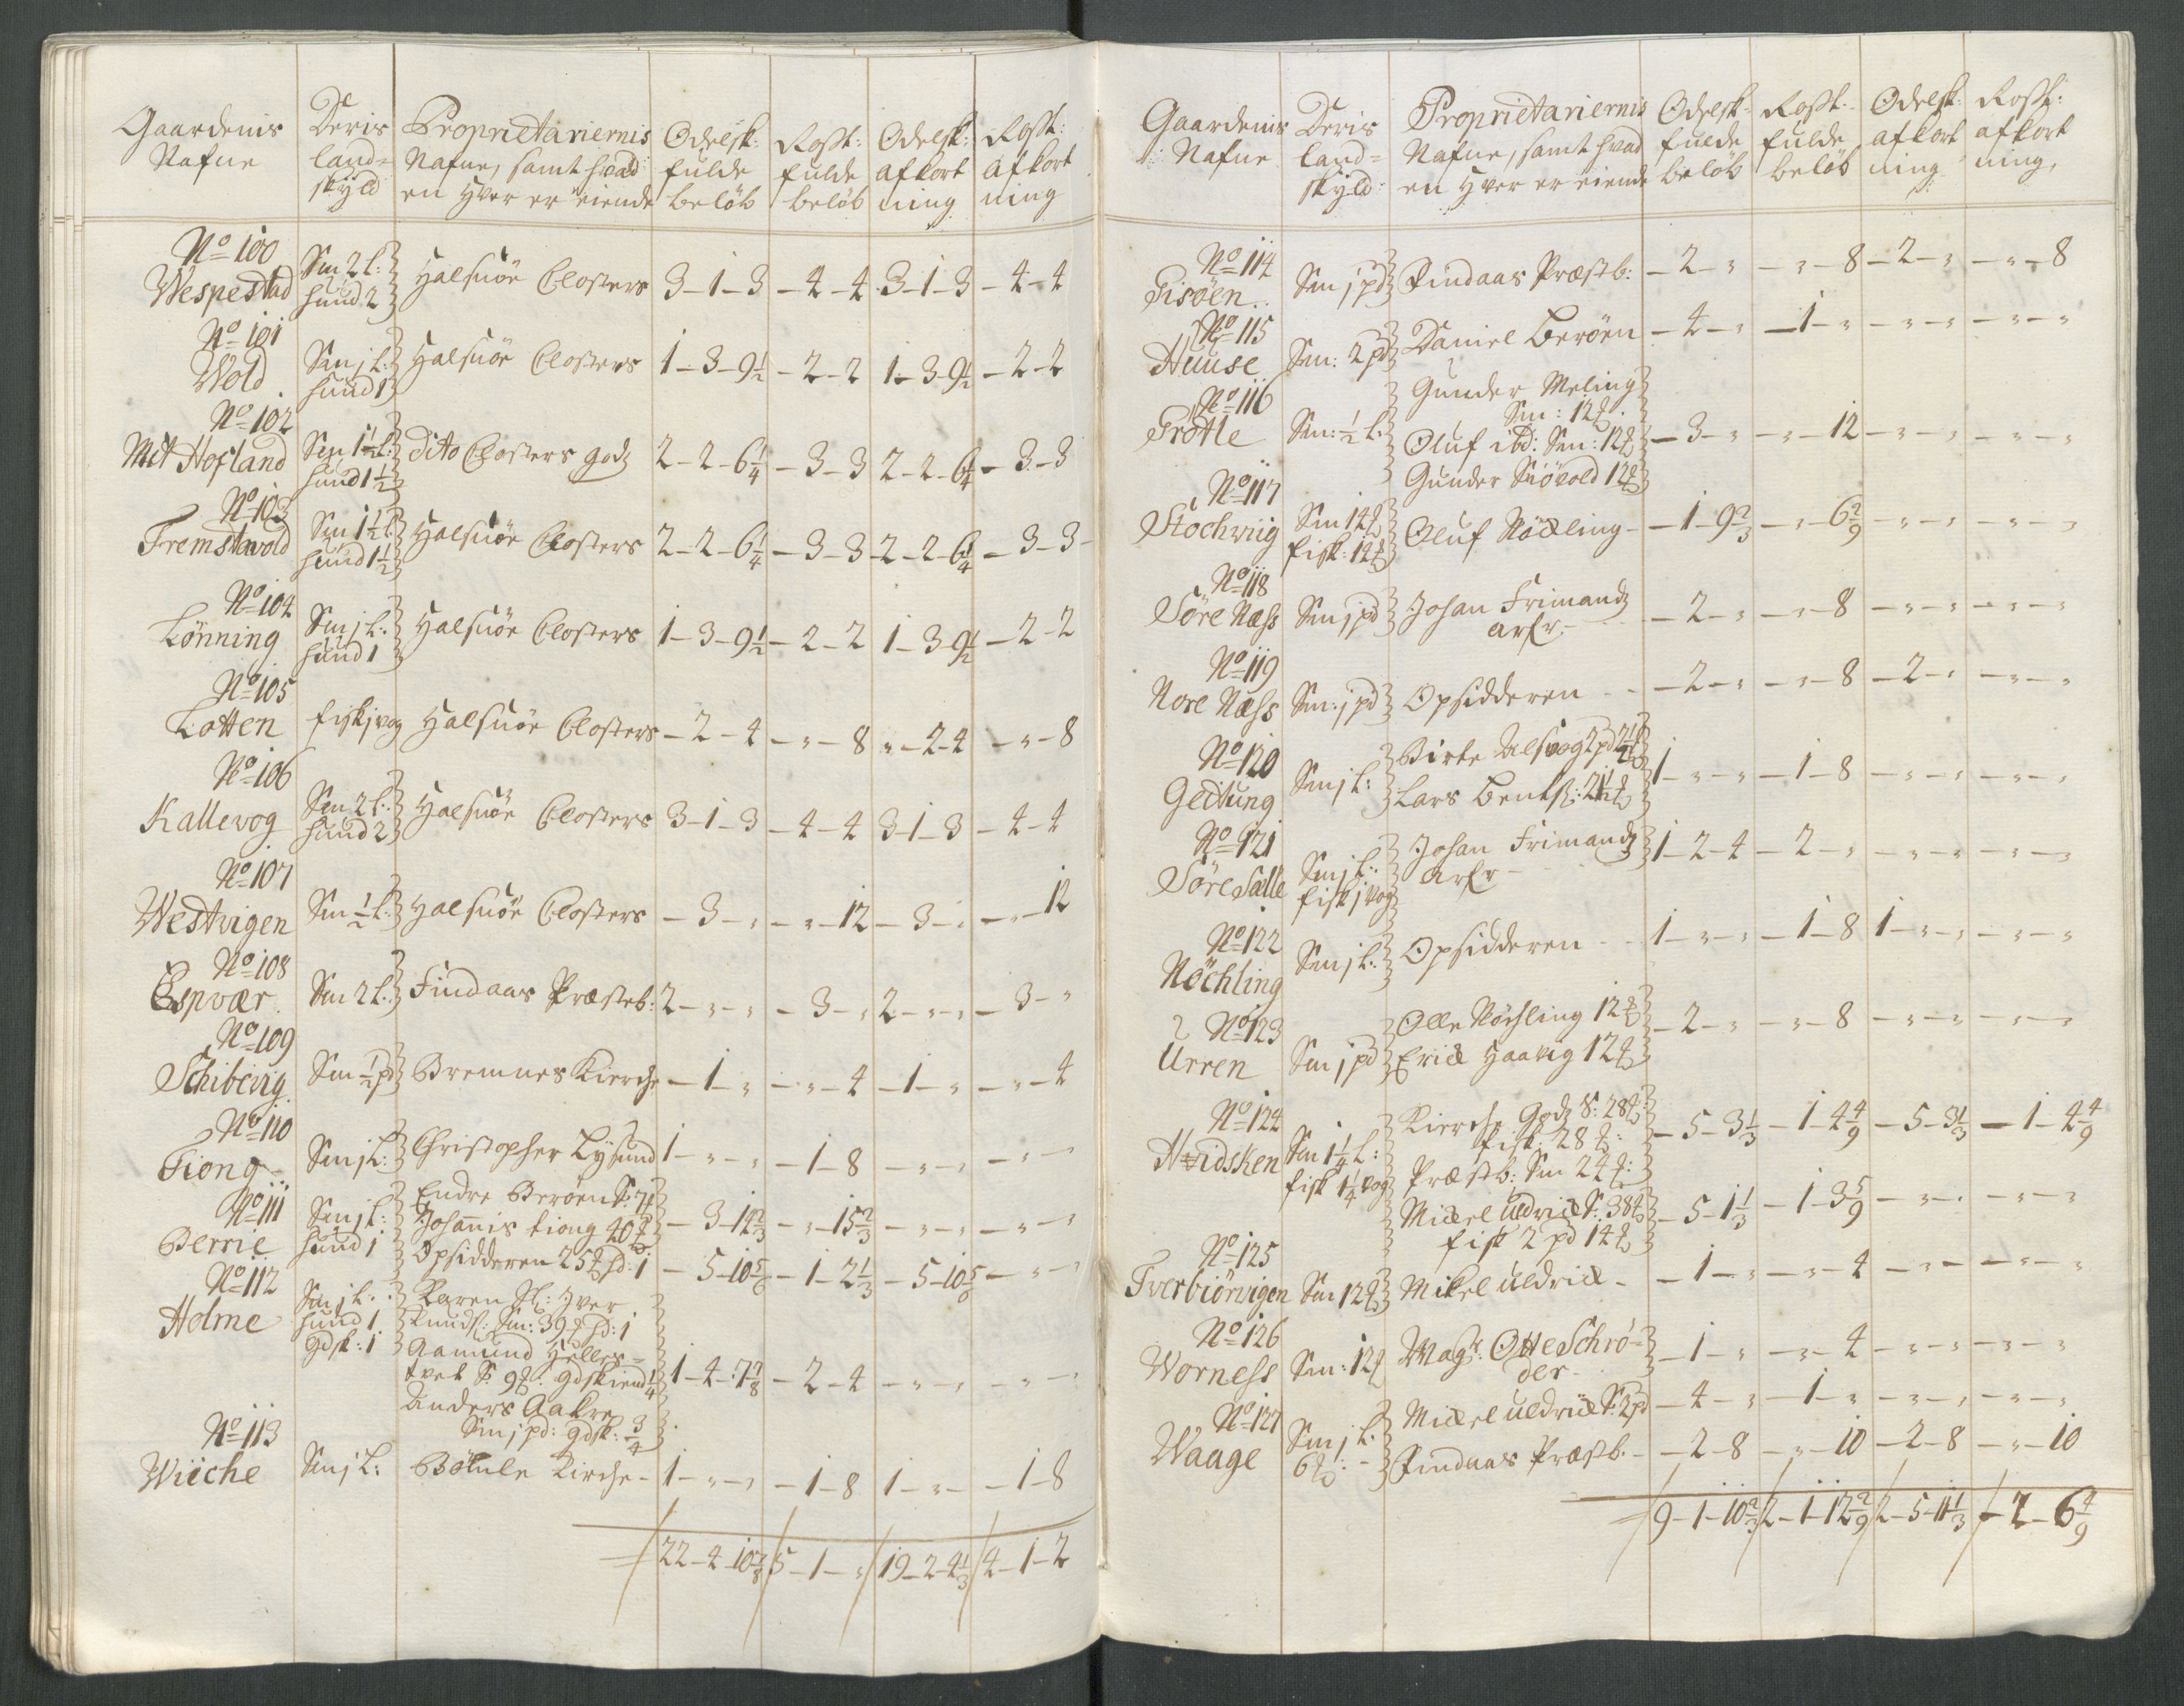 Gaardenis Nafne | Deris land= skyld | Proprietariernis Nafne, samt hvad en Hver er eiende | Odelsk: fulde beløb | Rostt: fulde beløb | Odelsk: afkort ning | Rostt: afkort ning
No 100
Wespestad | Sm 2 L: hund 2 | Halsnöe Closters | 3-1-3 | -4-4 | 3-1-3 | -4-4
No 101
Wold | Sm j L: hund 1 | Halsnöe Closters | 1-3-9½ | -2-2 | 1-3-9½ | -2-2
No 102
Mit Hofland | Sm 1½ L: hund 1½ | dito Closters godz | 2-2-6¼ | -3-3 | 2-2-6¼ | -3-3
No 103
Fremstevold | Sm 1½ L hund 1½ | Halsnöe Closters | 2-2-6¼ | -3-3 | 2-2-6¼ | -3-3
No 104
Lönning | Sm j L: hund 1 | Halsnöe Closters | 1-3-9½ | -2-2 | 1-3-9½ | -2-2
No 105
Lotten | fisk j vog | Halsnöe Closters | -2-4 | -"-8 | "-2-4 | -"-8
No 106
Kallevog | Sm 2 L: hund 2 | Halsnöe Closters | 3-1-3 | -4-4 | 3-1-3 | -4-4
No 107
Westvigen | Sm ½ L: | Halsnöe Closters | -3-" | -"-12 | -3-" | -"-12
No 108
Espvær | Sm 2 L: | Findaas Præsteb: | 2-"-" | -3-" | 2-"-" | -3-"
No 109
Schibevig | Sm ½ pd | Bremnes Kierche | -1-" | -"-4 | -1-" | -"-4
No 110
Tiong | Sm j L: | Christopher Lysund | 1-"-" | -1-8 | -"-" | -"-"
No 111
Berrie | Sm j L: hund 1 | Endre Berøen S: 7
Johannis tiong 40 | -3-14⅔ | -"-15⅔ | -"-" | -"-"
Opsidderen 25 hd: 1 | -5-10⅚ | -1-2⅓ | -5-10⅚ | -"-"
No 112
Holme | Sm j L: hund 1 gdsk: 1 | Karen Sl: Iver
Knuds: Sm: 39 hd: 1
Aamund Helles=
tvet S: 9 gdskiend ¼ | 1-4-7⅞ | -2-4 | -"-" | -"-"
Anders Aakre
Sm j pd: gdsk: ¾
No 113
Wiiche | Sm j L: | Bömle Kirche | 1-"-" | -1-8 | 1-"-" | -1-8
22-4-10⅞ | 5-1-" | 19-2-4⅓ | 4-1-2
Gaardenis Nafne | Deris land= skyld: | Proprietariernis Nafne, samt hvad en Hver er eiende | Odelsk: fulde beløb | Rostt: fulde beløb | Odelsk: afkort ning | Rostt: afkort ning
No 114
Gisöen | Sm j pd | Findaas Præstb: | -2-" | -"-8 | -2-" | -"-8
No 115
Huuse | Sm: 2 pd | Daniel Berøen | -4-" | -1-" | -"-" | -"-"
No 116
Grötle | Sm: ½ L: | Gunder Meling
Sm: 12
Oluf ibd: Sm: 12 | -3-" | -"-12 | -"-" | -"-"
Gunder Siövold 12
No 117
Stochvig | Sm 14 fisk: 12 | Oluf Nöckling | -1-9⅔ | -"-6 2/9 | -"-" | -"-"
No 118
Söre Næss | Sm j pd | Johan Frimands arfr: | -2-" | -"-8 | -"-" | -"-"
No 119
Nore Næss | Sm: j pd | Opsidderen | -2-" | -"-8 | -2-" | -"-"
No 120
Geitung | Sm j L: | Birte Alsvog 2 pd 2½
Lars Bents: 21½ | 1-"-" | -1-8 | -"-" | -"-"
No 121
Söre Salle | Sm j L: fisk j vog | Johan Frimands arfr | 1-2-4 | -2-" | -"-" | -"-"
No 122
Nöchling | Sm j L: | Opsidderen | 1-"-" | -1-8 | 1-"-" | -"-"
No 123
Urren | Sm j pd | Olle Nöchling 12
Erick Haavig 12 | -2-" | -"-8 | -"-" | -"-"
No 124
Hvidsken | Sm 1¼ L: fisk 1¼ vog | Kierche Godz S: 28
fisk: 28 | -5-3⅓ | -1-4 4/9 | -5-3⅓ | -1-4 4/9
Præstb: Sm 24
Mickel uldrick S: 38
fisk 2 pd 14 | -5-1⅓ | -1-3 5/9 | -"-" | -"-"
No 125
Tverbiörvigen | Sm 12 | Mikel uldrick | -1-" | -"-4 | -"-" | -"-"
No 126
Worness | Sm: 12 | Magr: Otte Schrö-
der | -1-" | -"-4 | -"-" | -"-"
No 127
Waage | Sm j L: 6 | Mickel uldrick S: 2 pd | -4-" | -1-" | -"-" | -"-"
Findaas Præstb: | -2-8 | -"-10 | -2-8 | -"-10
9-1-10⅔ | 2-1-12 2/9 | 2-5-11⅓ | -2-6 4/9